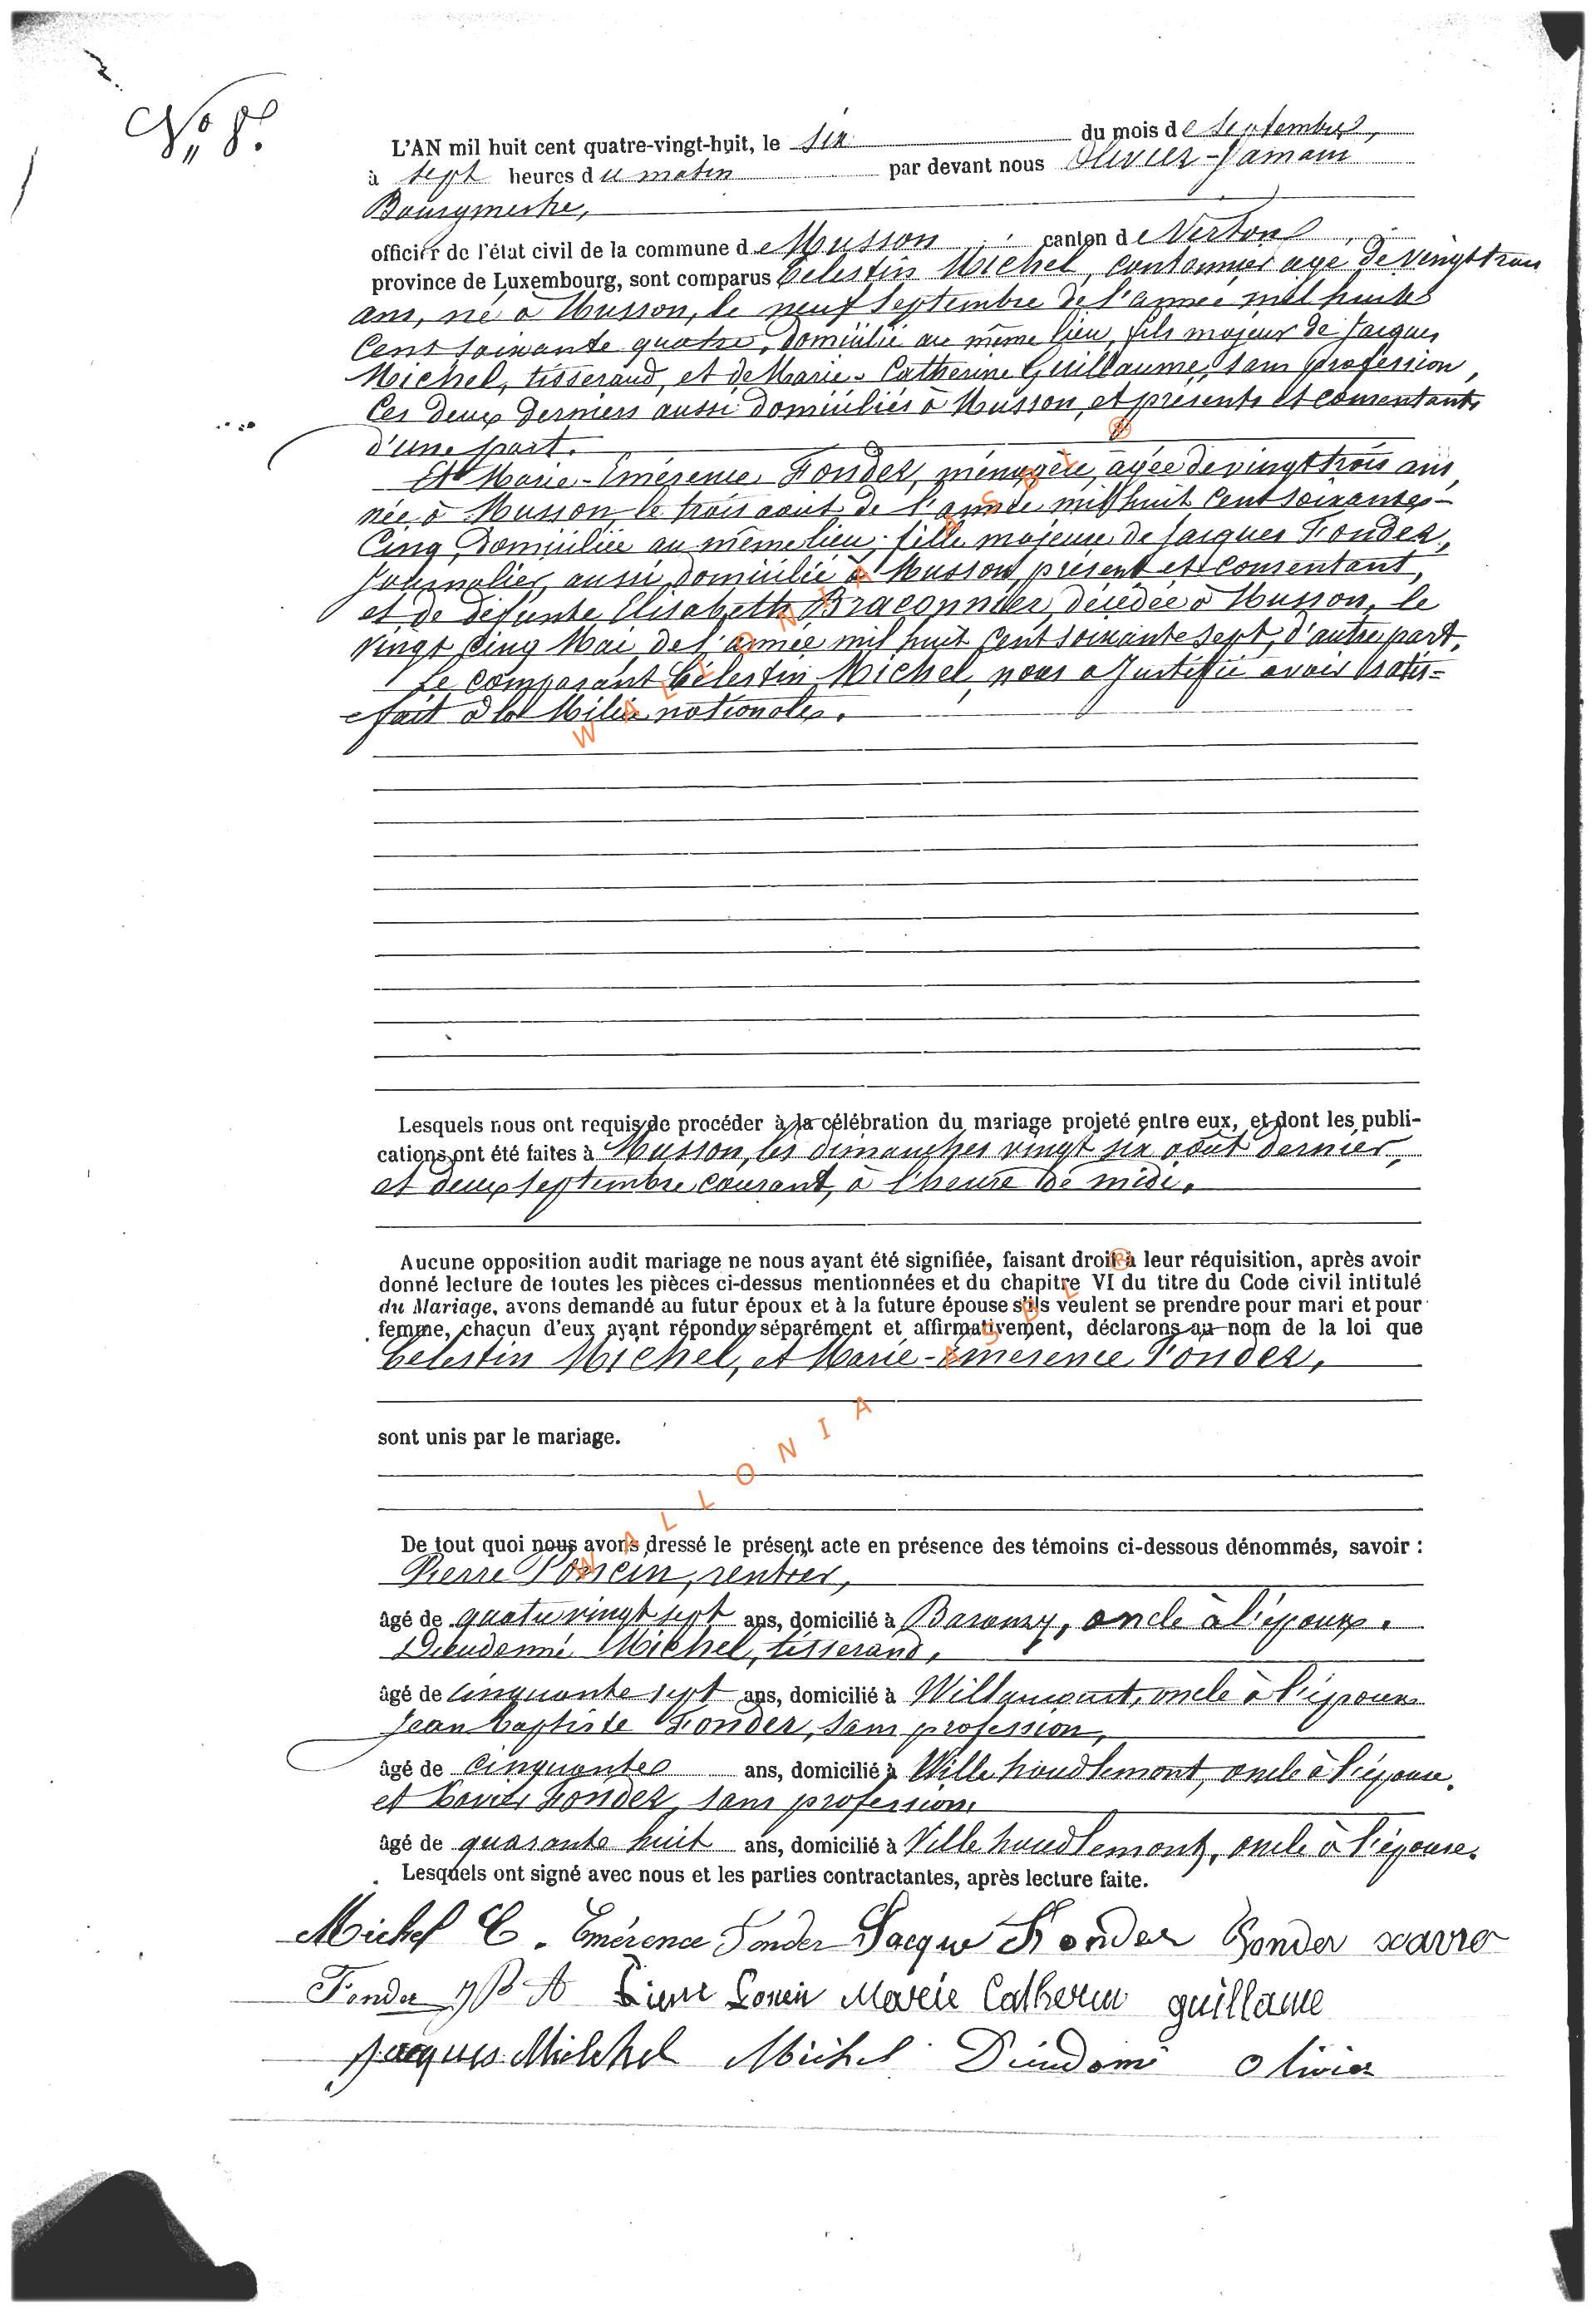 N° 8.
L'AN mil huit cent quatre-vingt-huit, le six du mois de septembre,
à sept heures du matin par devant nous Olivier-Jamain
Bourgmestre,
officier de l'état civil de la commune de Musson canton de Virton
province de Luxembourg, sont comparus Célestin Michel, cantonnier agé de vingt trois
ans, né à Musson, le neuf septembre de l'année mil huit
cent soixante quatre, domicilié au même lieu, fils majeur de Jacques
Michel, tisserand, et de Marie-Catherine Guillaume, sans profession,
ces deux derniers aussi domiciliés à Musson, et présents et consentants
d'une part.
Et Marie-Emérence Fonder, ménagère, agée de vingt trois ans,
née à Musson, le trois aout de l'année mil huit cent soixante-
cinq, domiciliée au même lieu, fille majeure de Jacques Fonder,
journalier, aussi domicilié à Musson, présent et consentant,
et de défunte Elisabeth Braconnier, décédée à Musson, le
vingt cinq Mai de l'année mil huit cent soixante sept, d'autre part.
Le comparant Célestin Michel, nous a justifié avoir satis=
fait à la Milice nationale.
Lesquels nous ont requis de procéder à la célébration du mariage projeté entre eux, et dont les publi-
cations ont été faites à Musson, les dimanches vingt six août dernier,
et deux septembre courant, à l'heure de midi.
Aucune opposition audit mariage ne nous ayant été signifiée, faisant droit à leur réquisition, après avoir
donné lecture de toutes les pièces ci-dessus mentionnées et du chapitre VI du titre du Code civil intitulé
du Mariage, avons demandé au futur époux et à la future épouse s'ils veulent se prendre pour mari et pour
femme, chacun d'eux ayant répondu séparément et affirmativement, déclarons au nom de la loi que
Célestin Michel, et Marie-Emérence Fonder,
sont unis par le mariage.
De tout quoi nous avons dressé le présent acte en présence des témoins ci-dessous dénommés, savoir :
Pierre Poncin, rentier,
âgé de quatre vingt sept ans, domicilié à Baranzy, oncle à l'époux.
Dieudonné Michel, tisserand,
âgé de cinquante sept ans, domicilié à Willancourt, oncle à l'époux
Jean Baptiste Fonder, sans profession,
âgé de cinquante ans, domicilié à Ville houdlemont, oncle à l'épouse.
et Xavier Fonder, sans profession,
âgé de quarante huit ans, domicilié à Ville houdlemont, oncle à l'épouse.
Lesquels ont signé avec nous et les parties contractantes, après lecture faite.
Michel C. Emérence Fonder Jacque Fonder Fonder xavier
Fonder J B t Pierre Poncin Marie Catherin guillaume
Jacques Michel Michel Dieudonné Olivier
WALLONIA ASBL ®
WALLONIA ASBL ®